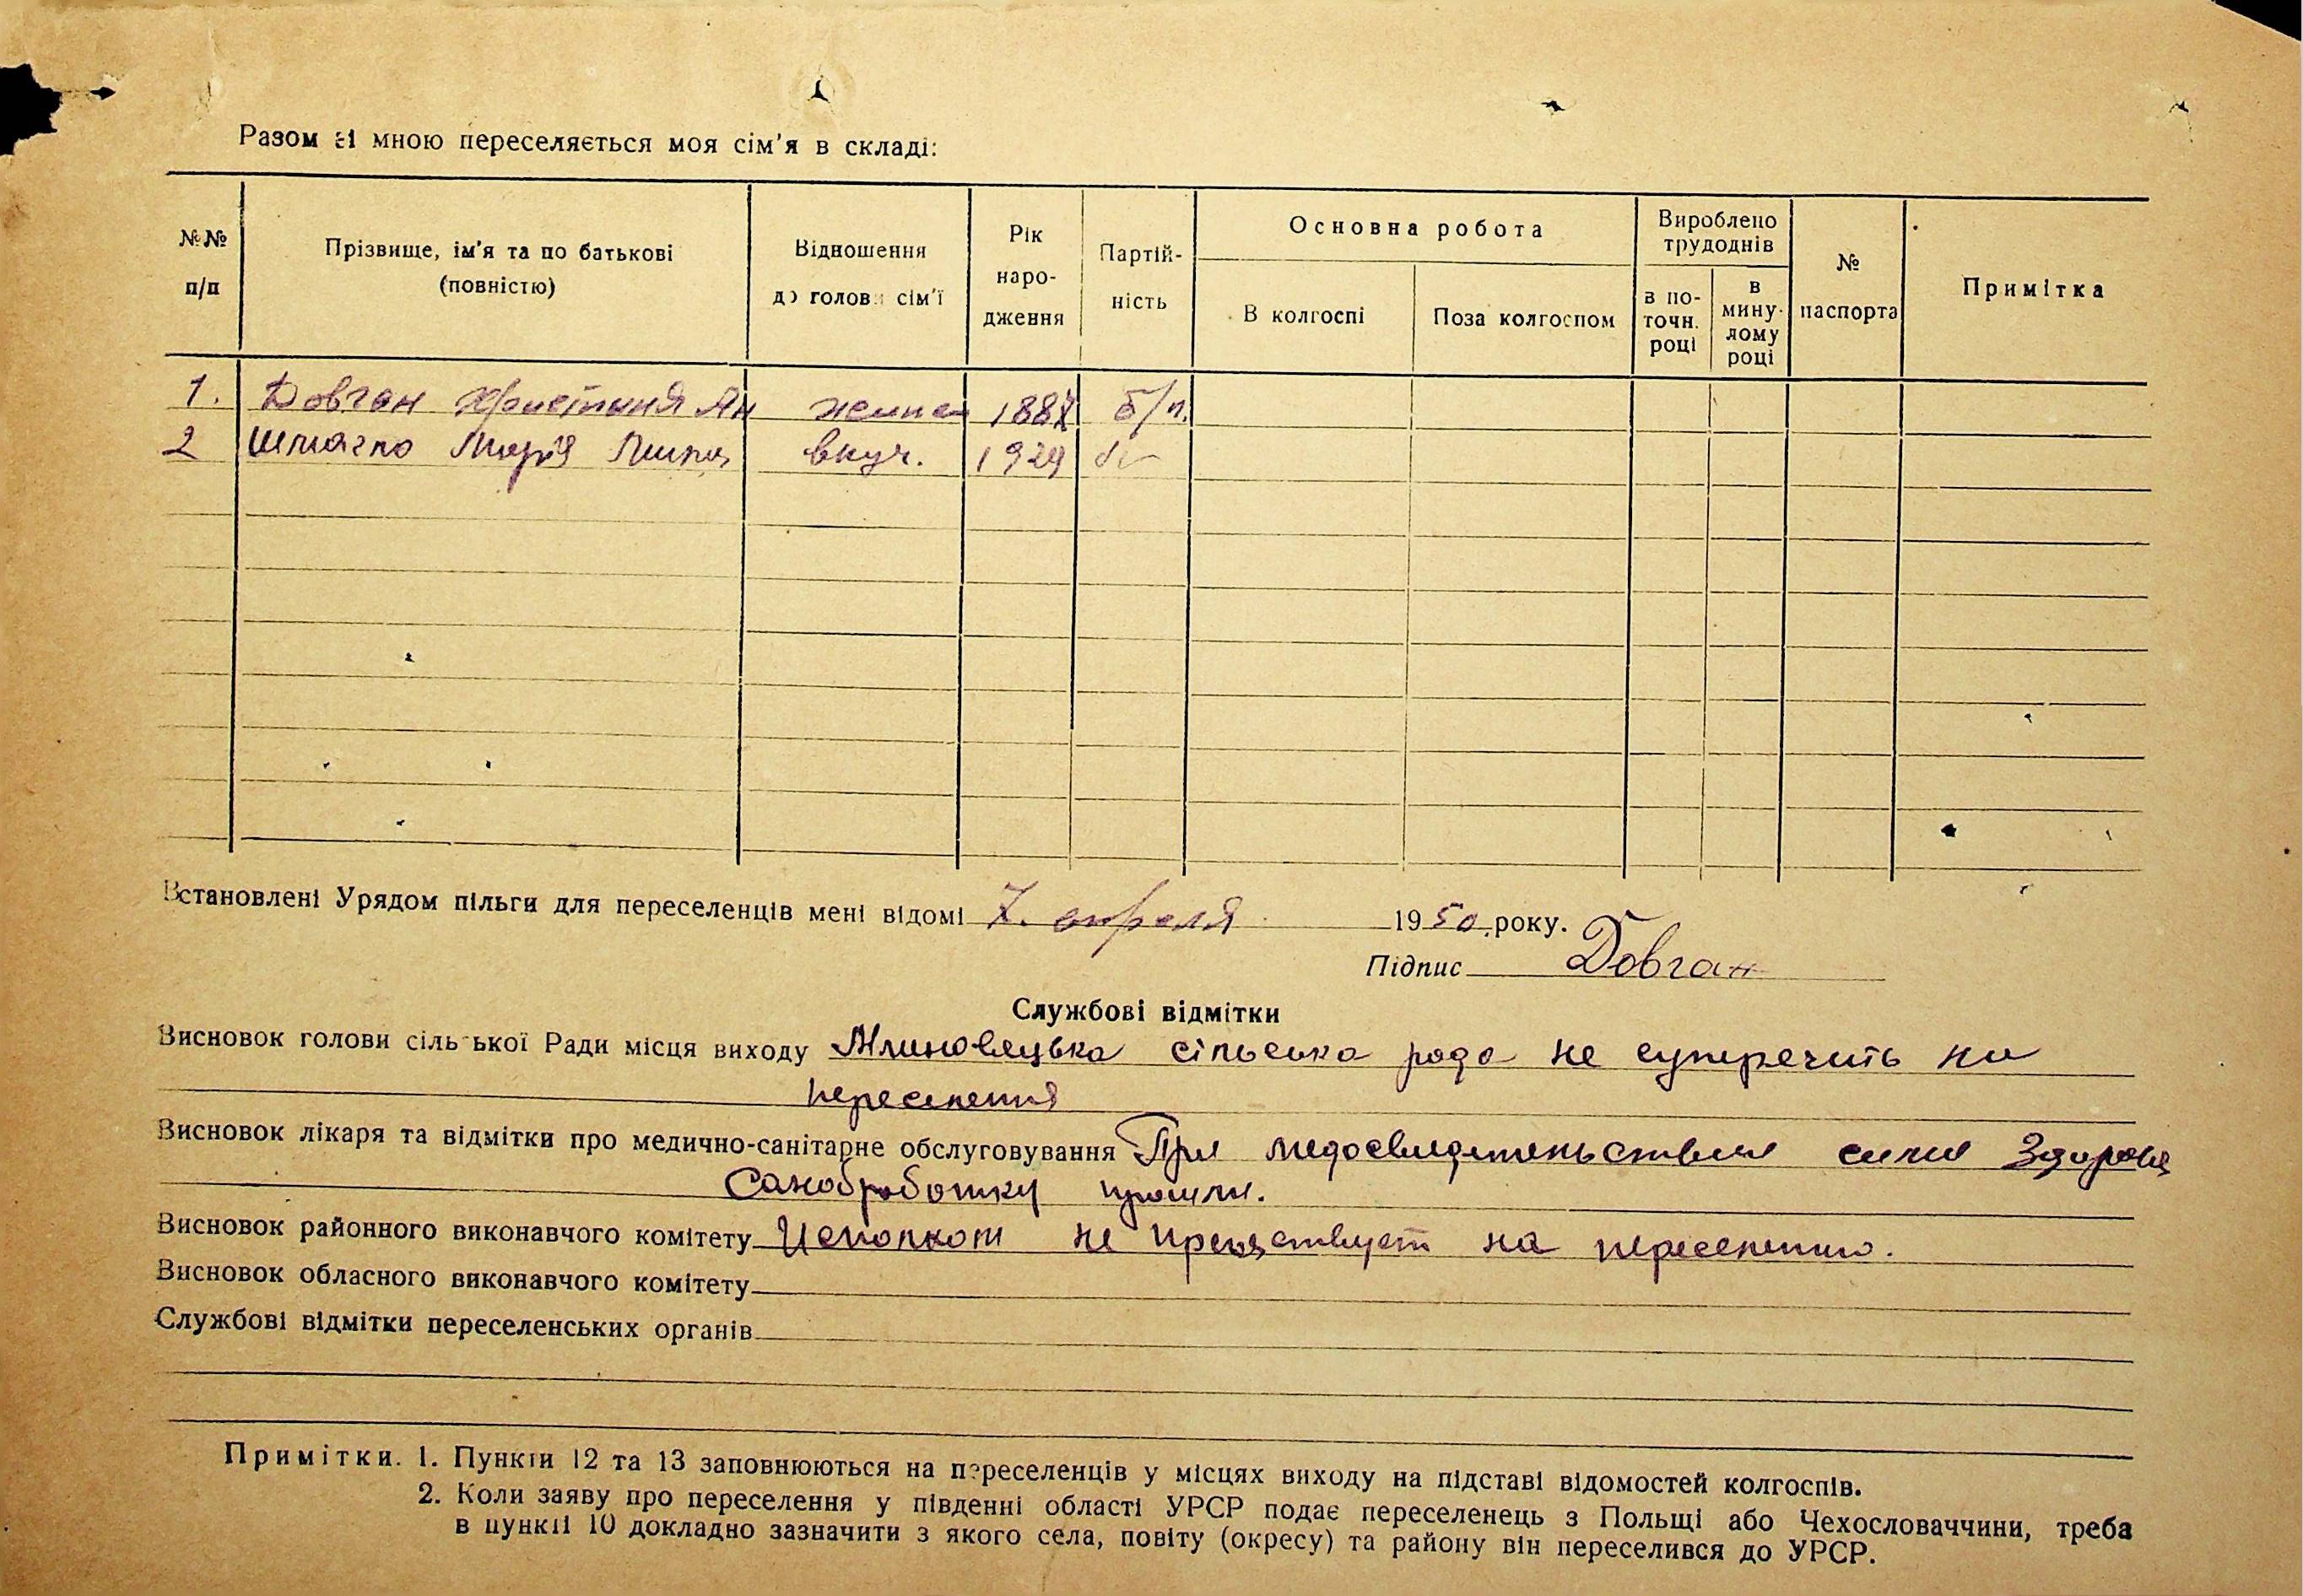 Разом зі мною переселяється моя сім'я в складі:
№№ п/п
Прізвище, ім'я та по батькові (повністю)
Відношення до голови сім'ї
Рік народження
Партій-ність
Основна робота
В колгоспі
Поза колгоспом
Вироблено трудоднів
в по-точн. році
в мину-лому році
№ паспорта
Примітка
1. Довган Христина Ан 1887 б/п.
2 Марія внуч. 1929
Встановлені Урядом пільги для переселенців мені відомі 7. апреля 1950 року.
Підпис Довган
Службові відмітки
Висновок голови сільської Ради місця виходу Млиновецька сільська рада не суперечить на
переселення
Висновок лікаря та відмітки про медично-санітарне обслуговування При медосвидетельствии семя здорова
Санобработку прошли.
Висновок районного виконавчого комітету Исполком не препятствует на переселению.
Висновок обласного виконавчого комітету
Службові відмітки переселенських органів
Примітки. 1. Пункти 12 та 13 заповнюються на переселенців у місцях виходу на підставі відомостей колгоспів.
2. Коли заяву про переселення у південні області УРСР подає переселенець з Польщі або Чехословаччини, треба
в пункті 10 докладно зазначити з якого села, повіту (окресу) та району він переселився до УРСР.